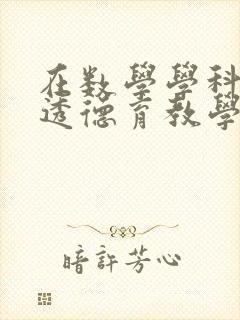 在数學學科
透德育教學
暗許芳心